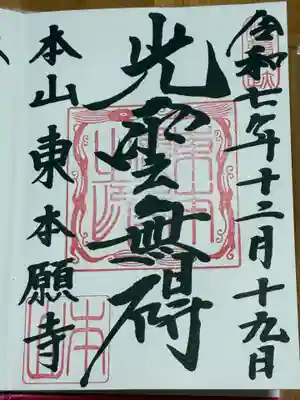 令和七年十二月十九日
光雲無碍
本山東本願寺